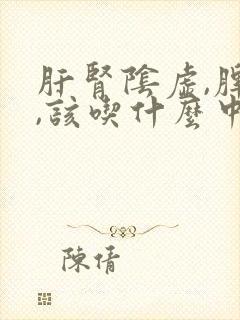 肝腎陰虛,脾
,該喫什麼中
陳倩